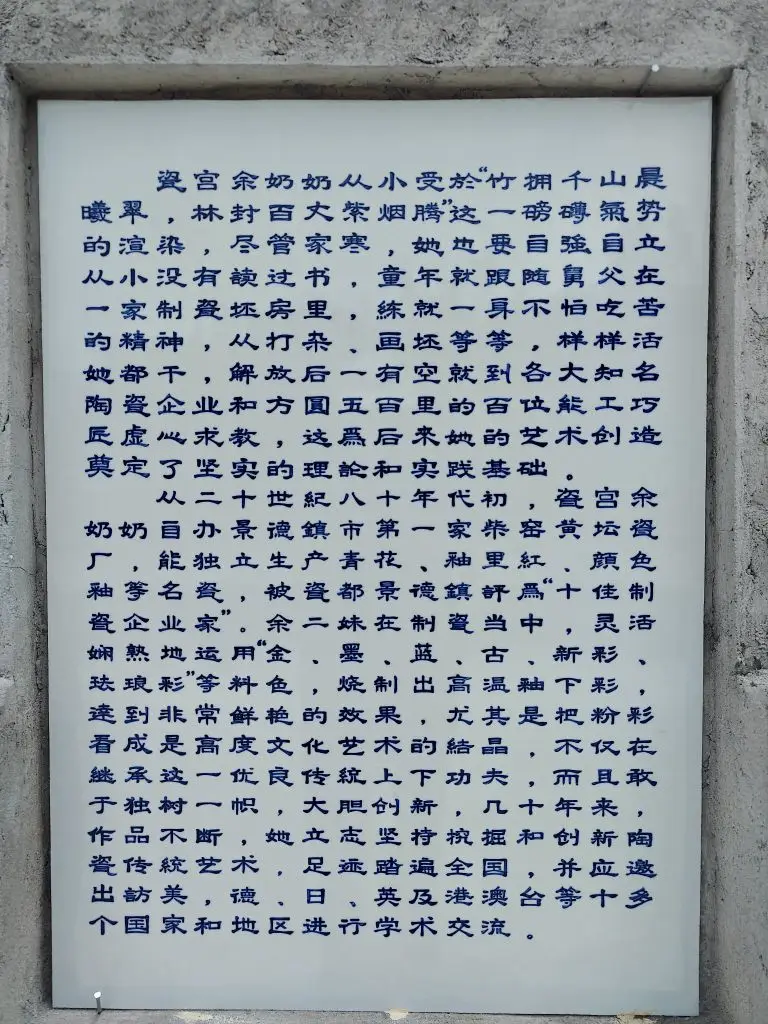 瓷宫余奶奶从小受於“竹拥千山晨
曦翠，林封百丈紫烟腾”这一磅礴氣势
的渲染，尽管家寒，她也要自強自立
从小没有读过书，童年就跟随舅父在
一家制瓷坯房里，练就一身不怕吃苦
的精神，从打杂、画坯等等，样样活
她都干，解放后一有空就到各大知名
陶瓷企业和方圓五百里的百位能工巧
匠虚心求教，这爲后来她的艺术创造
奠定了坚实的理論和实践基础。
从二十世紀八十年代初，瓷宫余
奶奶自办景德鎮市第一家柴窑黄坛瓷
厂，能独立生产青花、釉里紅、顔色
釉等名瓷，被瓷都景德鎮評爲“十佳制
瓷企业家”。余二妹在制瓷当中，灵活
娴熟地运用“金、墨、蓝、古、新彩、
珐琅彩”等料色，烧制出高温釉下彩，
達到非常鲜艳的效果，尤其是把粉彩
看成是高度文化艺术的結晶，不仅在
继承这一优良传統上下功夫，而且敢
于独树一帜，大胆创新，几十年来，
作品不断，她立志坚持挖掘和创新陶
瓷传統艺术，足迹踏遍全国，并应邀
出訪美，德、日、英及港澳台等十多
个国家和地区进行学术交流。